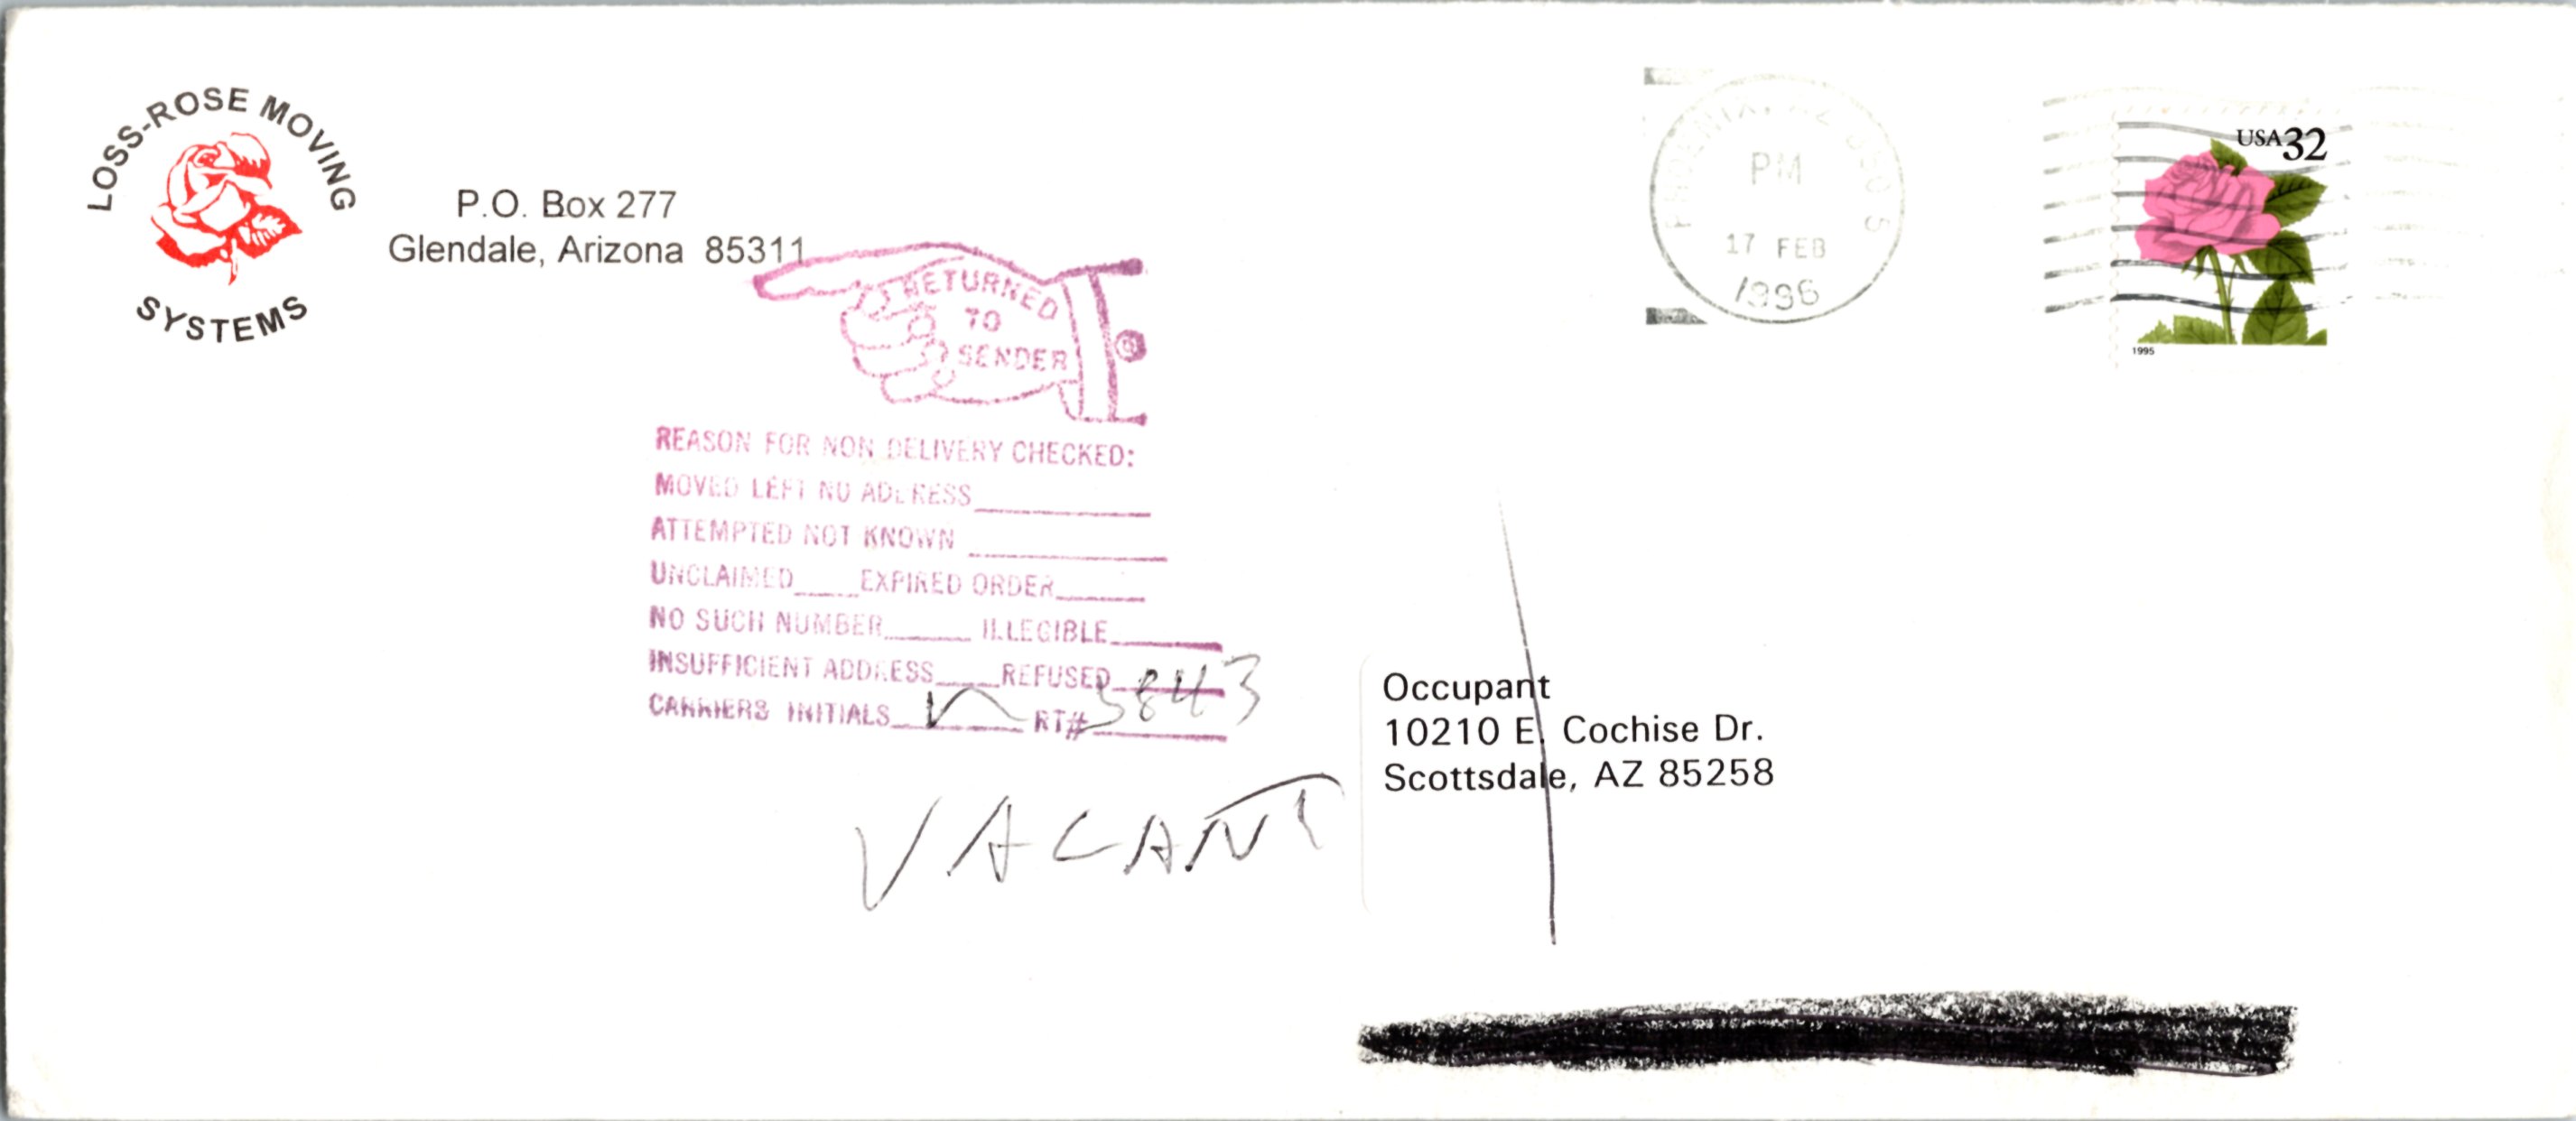 LOSS-ROSE MOVING
SYSTEMS
P.O. Box 277
Glendale, Arizona 85311
PM
17 FEB
1996
USA32
1995
RETURNED
TO
SENDER
REASON FOR NON DELIVERY CHECKED:
MOVED LEFT NO ADDRESS
ATTEMPTED NOT KNOWN
UNCLAIMED EXPIRED ORDER
NO SUCH NUMBER ILLEGIBLE
INSUFFICIENT ADDRESS REFUSED
CARRIERS INITIALS RT# 5843
VACANT
Occupant
10210 E. Cochise Dr.
Scottsdale, AZ 85258